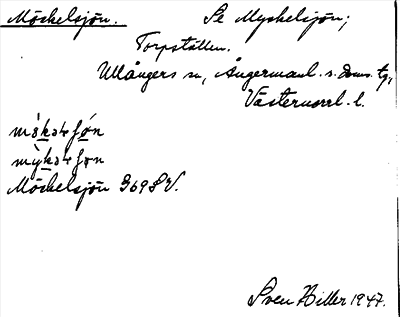 Möckelsjön. Se Myckelsjön;
Torpställen.
Ullångers sn, Ångermanl. s. doms. tg,
Västernorrl. l.
Möckelsjön 369 SV.
Sven Hiller 1947.